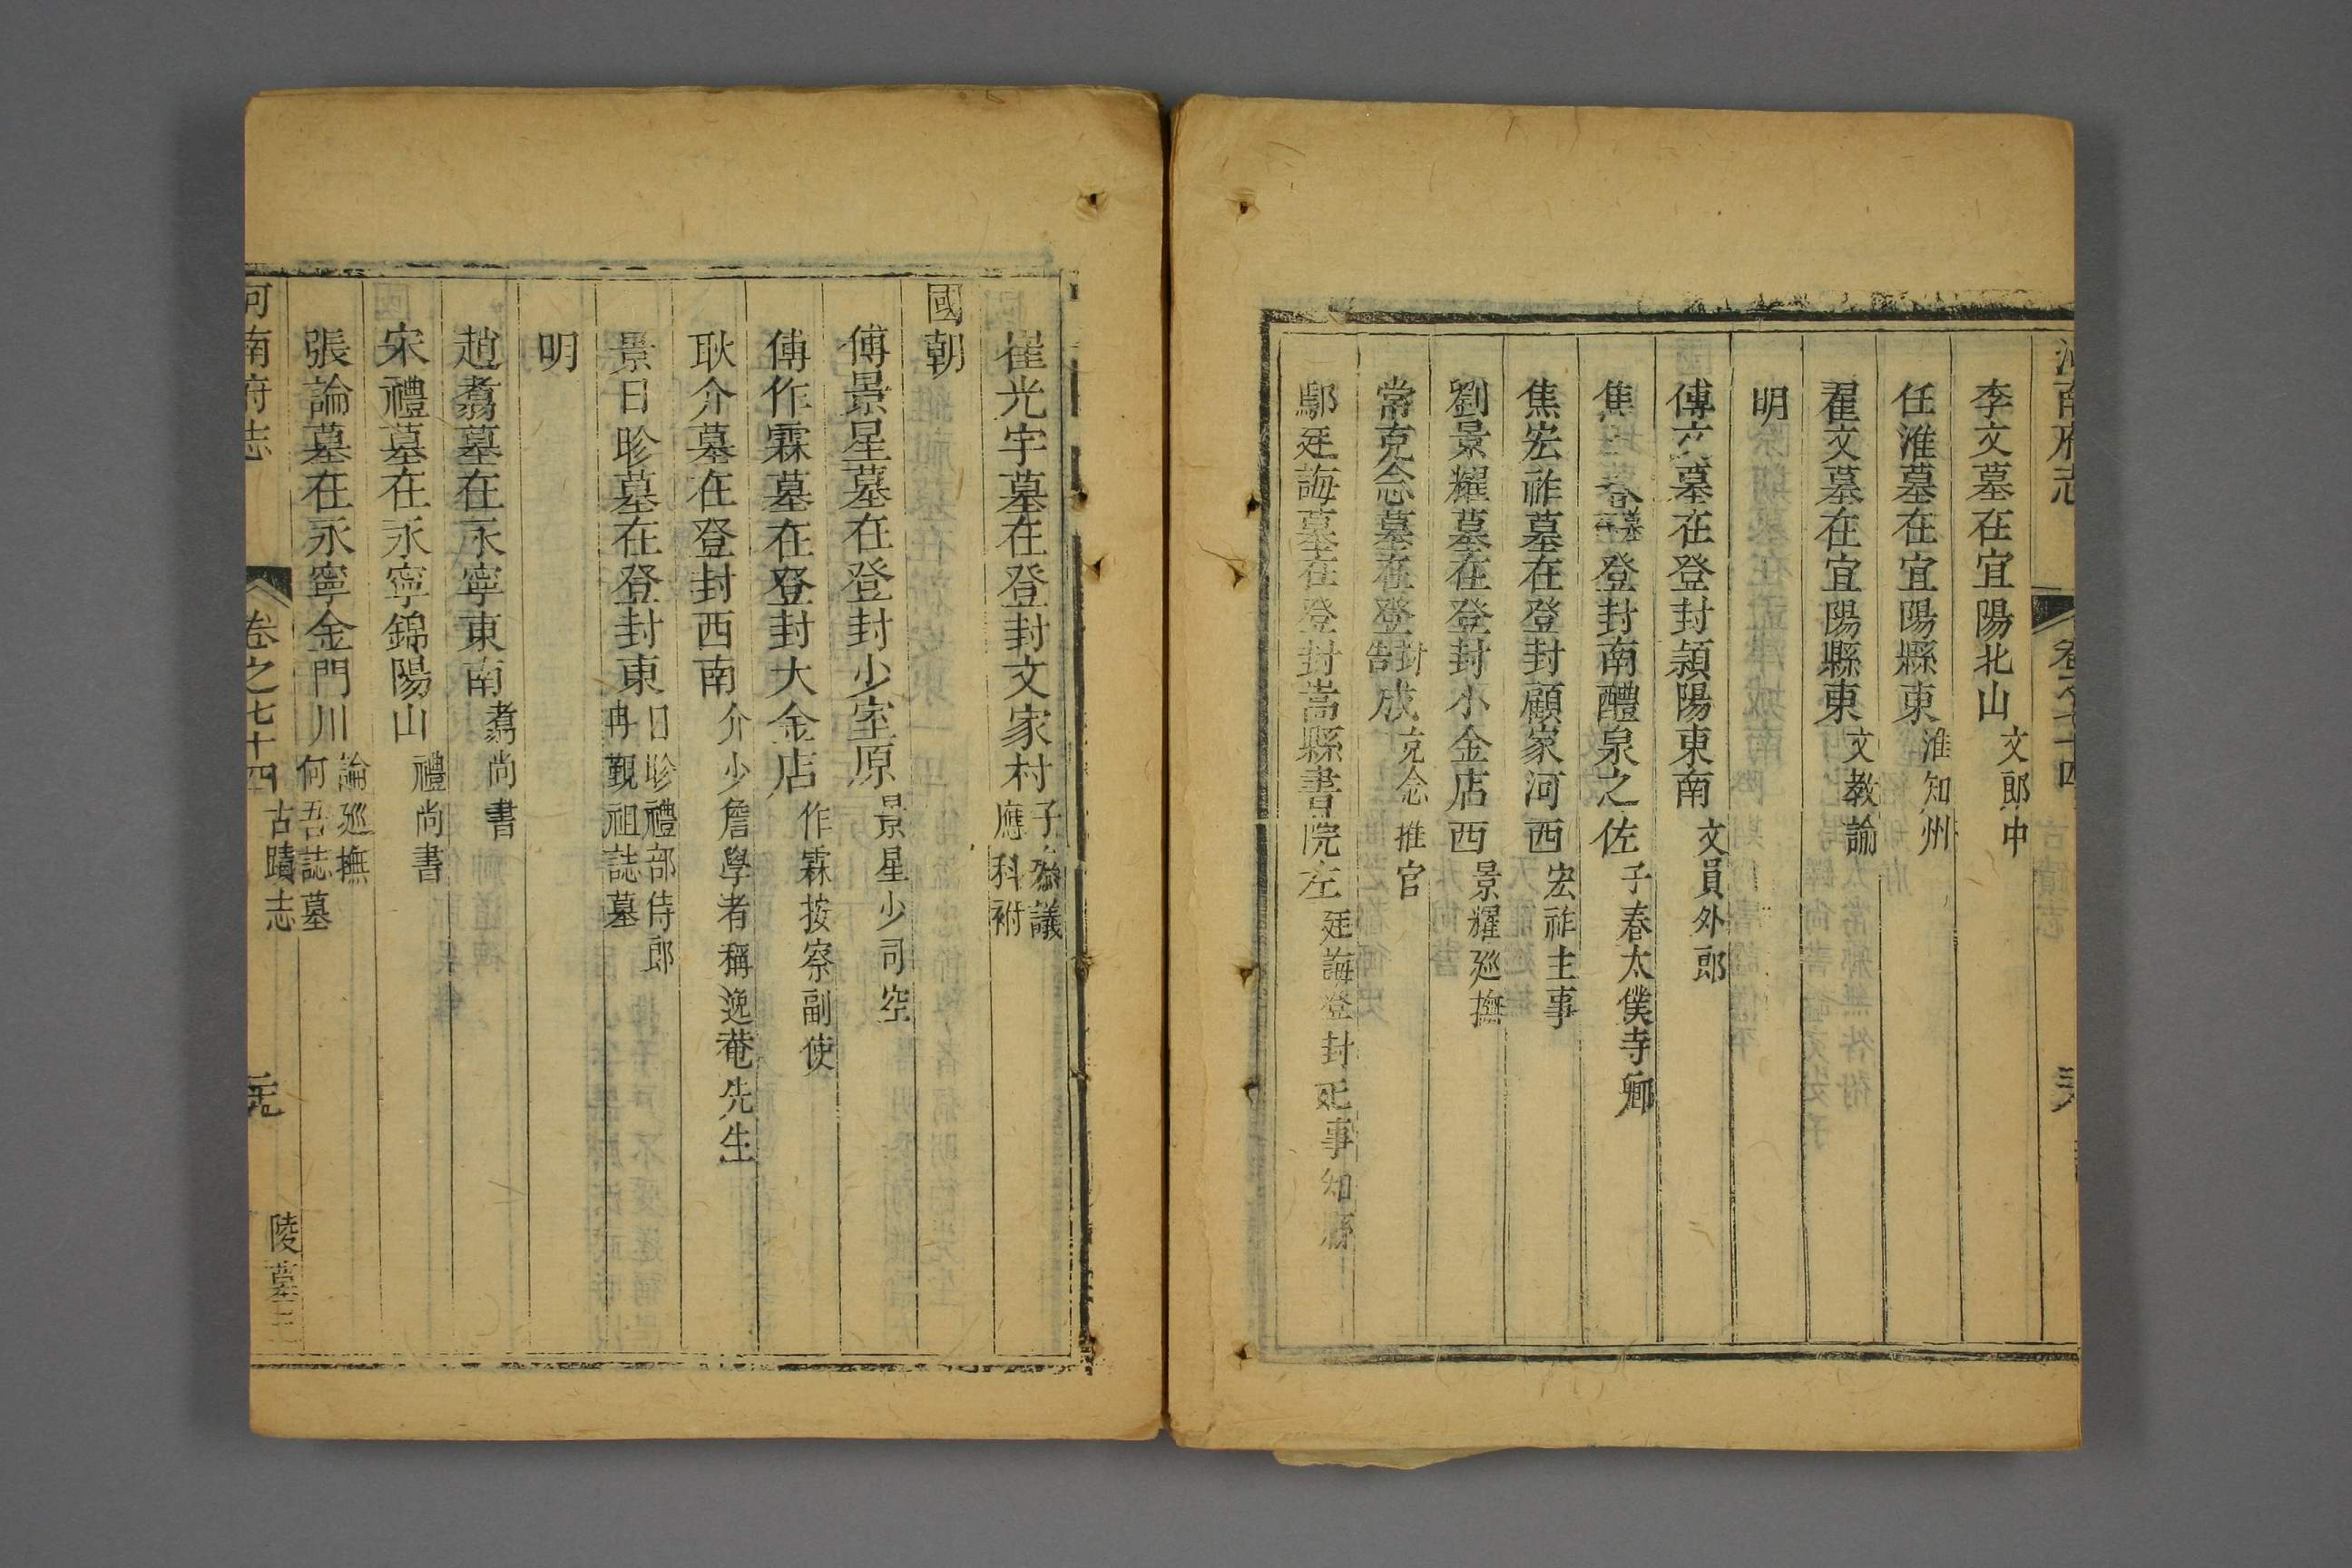 河南府志
卷之七十四
李文墓在宜陽北山文郎中
任淮墓在宜陽縣東淮知州
翟文墓在宜陽縣東文教諭
明
傅文墓在登封潁陽東南文員外郎
焦墓登封南醴泉之佐子春太僕寺卿
焦宏祚墓在登封顧家河西宏祚主事
劉景耀墓在登封小金店西景耀廵撫
常克念墓在登封告成克念推官
鄢廷誨墓在登封嵩縣書院左廷誨登封死事知縣
崔光宇墓在登封文家村子叅議應科祔
國朝
傅景星墓在登封少室原景星少司空
傅作霖墓在登封大金店作霖按察副使
耿介墓在登封西南介少詹學者稱逸菴先生
景日昣墓在登封東日昣禮部侍郎冉覲祖誌墓
明
趙翥墓在永寧東南翥尚書
宋禮墓在永寧錦陽山禮尚書
張論墓在永寧金門川論廵撫何吾誌墓
河南府志
卷之七十四
古蹟志
陵墓三